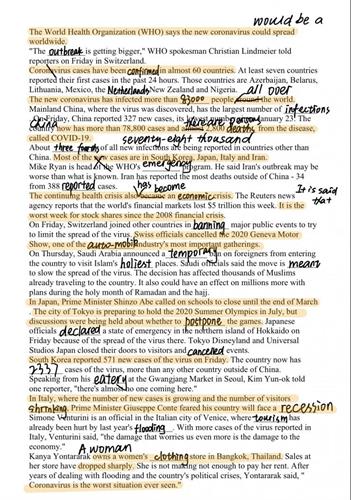 would be a
The World Health Organization (WHO) says the new coronavirus could spread
worldwide.
"The outbreak is getting bigger," WHO spokesman Christian Lindmeier told
reporters on Friday in Switzerland.
Coronavirus cases have been confirmed in almost 60 countries. At least seven countries
reported their first cases in the past 24 hours. Those countries are Azerbaijan, Belarus,
Lithuania, Mexico, the Netherlands New Zealand and Nigeria.
all over
The new coronavirus has infected more than 83000 people around the world.
Mainland China, where the virus was discovered, has the largest number of infections
China
On Friday, China reported 327 new cases, its lowest number January 23. The
there are persons
country now has more than 78,800 cases and 2,800 deaths from the disease,
called COVID-19.
seventy-eight thousand
About three fourths of all new infections are being reported in countries other than
China. Most of the new cases are in South Korea, Japan, Italy and Iran.
Mike Ryan is head the WHO's emergency. He said Iran's outbreak may be
worse than what is known. Iran has reported the most deaths outside of China - 34
from 388 reported cases.
has become
It is said that
The continuing health crisis also became an economic crisis. The Reuters news
agency reports that the world's financial markets lost $5 trillion this week. It is the
worst week for stock shares since the 2008 financial crisis.
On Friday, Switzerland joined other countries in banning major public events to try
to limit the spread of the virus. Swiss officials cancelled the 2020 Geneva Motor
Show, one of the auto-mobile industry's most important gatherings.
On Thursday, Saudi Arabia announced a temporary on foreigners from entering
the country to visit Islam's holiest places. Saudi officials said the move is meant
to slow the spread of the virus. The decision has affected thousands of Muslims
already traveling to the country. It also could have an effect on millions more with
plans during the holy month of Ramadan and the hajj.
In Japan, Prime Minister Shinzo Abe called on schools to close until the end of March
. The city of Tokyo is preparing to hold the 2020 Summer Olympics in July, but
discussions were being held about whether to postpone the games. Japanese
officials declared a state of emergency in the northern island of Hokkaido on
Friday because of the spread of the virus there. Tokyo Disneyland and Universal
Studios Japan closed their doors to visitors and canceled events.
South Korea reported 571 new cases of the virus on Friday. The country now has
2337 cases of the virus, more than any other country outside of China.
Speaking from his eatery at the Gwangjang Market in Seoul, Kim Yun-ok told
one reporter, "there's almost no one coming here."
In Italy, where the number of new cases is growing and the number of visitors
shrinking, Prime Minister Giuseppe Conte feared his country will face a recession
Simone Venturini is an official in the Italian city of Venice, where tourism has
already been hurt by last year's flooding. With more cases of the virus reported in
Italy, Venturini said, "the damage that worries us even more is the damage to the
economy."
A woman
Kanya Yontararak owns a women's clothing store in Bangkok, Thailand. Sales at
her store have dropped sharply. She is not making not enough to pay her rent. After
years of dealing with flooding and the country's political crises, Yontararak said, "
Coronavirus is the worst situation ever seen."